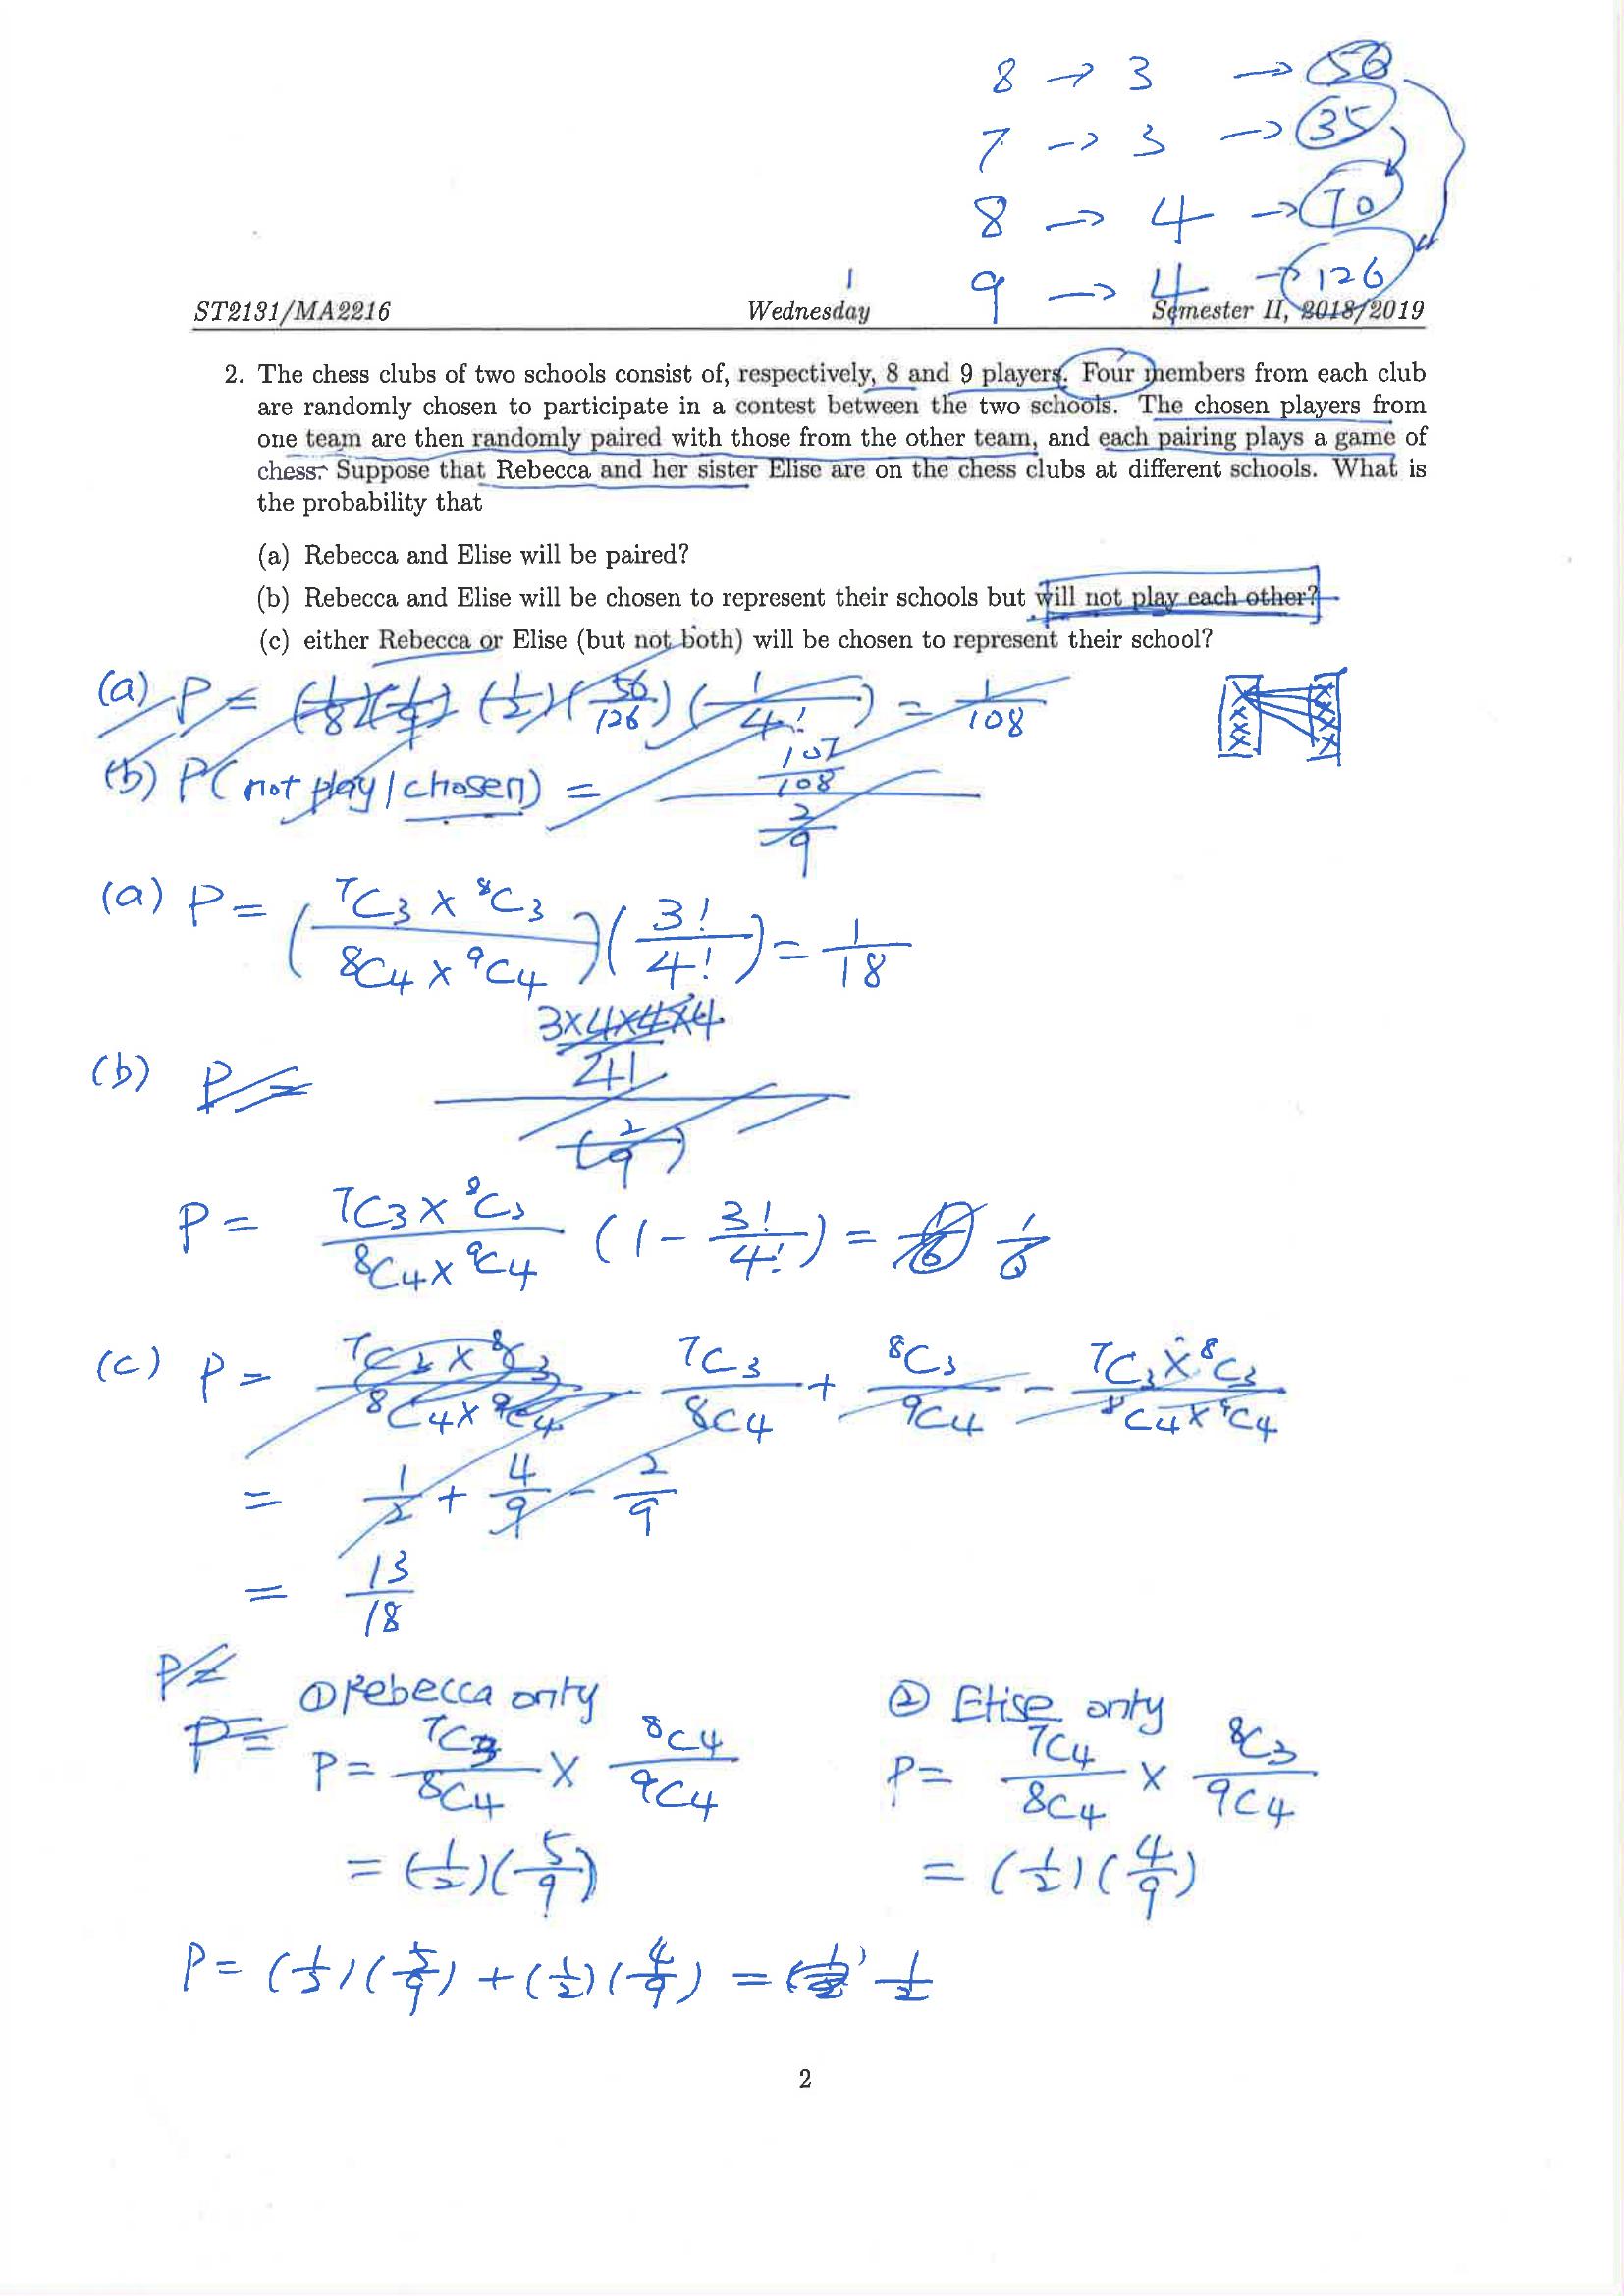 8 → 3 → 56
7 → 3 → 35
8 → 4 → 70
9 → 4 → 126
1
ST2131/MA2216 Wednesday Semester II, 2018/2019
2. The chess clubs of two schools consist of, respectively, 8 and 9 players. Four members from each club
are randomly chosen to participate in a contest between the two schools. The chosen players from
one team are then randomly paired with those from the other team, and each pairing plays a game of
chess. Suppose that Rebecca and her sister Elise are on the chess clubs at different schools. What is
the probability that
(a) Rebecca and Elise will be paired?
(b) Rebecca and Elise will be chosen to represent their schools but will not play each other?
(c) either Rebecca or Elise (but not both) will be chosen to represent their school?
(a) P = (1/8)(1/9) (1/2)(56/126)(1/4!) = 1/108
(b) P(not play/chosen) = (107/108)/(2/9)
(a) P = (7C3 × 8C3 / 8C4 × 9C4)(3!/4!) = 1/18
(b) P = (3×4×4×4/4!)/(2/9)
P = 7C3 × 8C3 / 8C4 × 9C4 (1 - 3!/4!) = 1/6
(c) P = 7C3 × 8C3 / 8C4 × 9C4 7C3/8C4 + 8C3/9C4 - 7C3 × 8C3 / 8C4 × 9C4
= 1/2 + 4/9 - 2/9
= 13/18
P =
① Rebecca only ② Elise only
P =
P = 7C3/8C4 × 8C4/9C4 P = 7C4/8C4 × 8C3/9C4
= (1/2)(5/9) = (1/2)(4/9)
P = (1/2)(5/9) + (1/2)(4/9) = 1/2
2